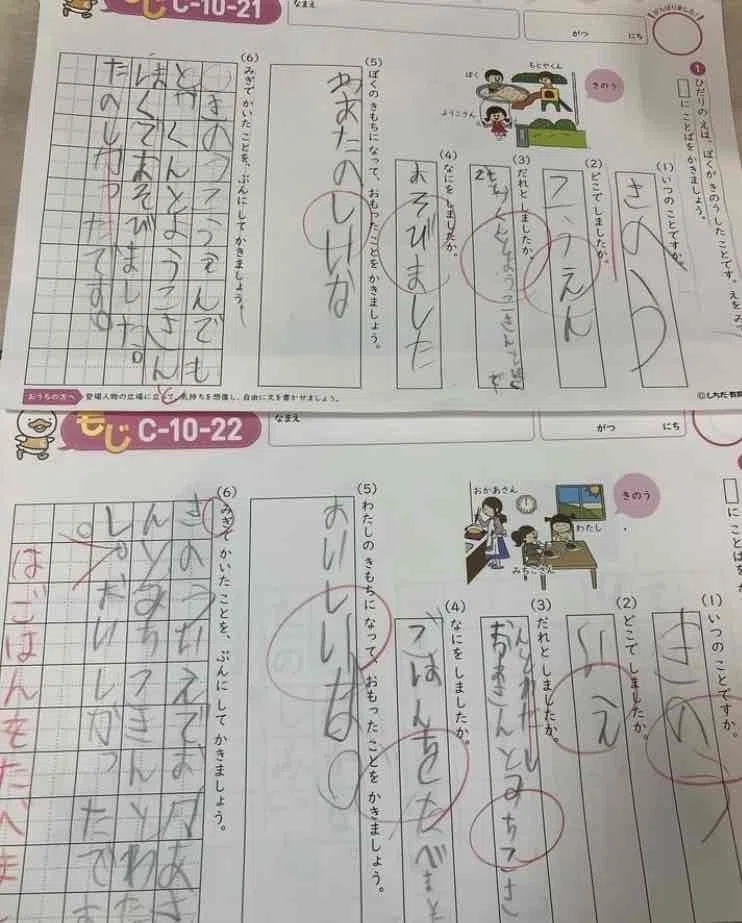 もじ C-10-21
なまえ
がつ にち
がんばりました!
1 ひだりの えは、ぼくが きのう した ことです。えを みて
□に ことばを かきましょう。
きのう
ぼく
もとやくん
ようこさん
(1) いつの ことですか。
きのう
(2) どこで しましたか。
こうえん
(3) だれと しましたか。
(4) なにを しましたか。
あそびました
(5) ぼくの きもちに なって、おもった ことを かきましょう。
たのしいな
(6) みぎで かいた ことを、ぶんに して かきましょう。
きのうこうえんでも
とやくんとようこさんと
ぼくであそびました。
たのしかったです。
おうちの方へ 登場人物の立場に立って、気持ちを想像し、自由に文を書かせましょう。
©しちだ・教育
もじ C-10-22
なまえ
がつ にち
□に ことばを
きのう
おかあさん
わたし
みちこさん
(1) いつの ことですか。
きのう
(2) どこで しましたか。
いえ
(3) だれと しましたか。
おかあさんとみちこさ
んとわたし
(4) なにを しましたか。
ごはんをたべました
(5) わたしの きもちに なって、おもった ことを かきましょう。
おいしいな
(6) みぎで かいた ことを、ぶんに して かきましょう。
きのういえでおかあさ
んとみちこさんとわた
し。おいしかったです
。
はごはんをたべま